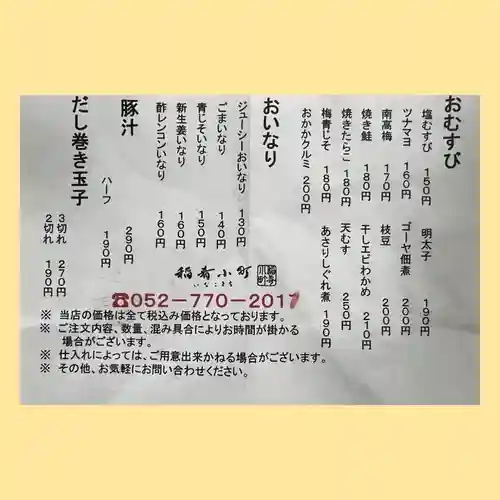 おむすび
塩むすび 150円
ツナマヨ 160円
南高梅 170円
焼き鮭 180円
焼きたらこ 180円
梅青じそ 180円
おかかクルミ 200円
明太子 190円
ゴーヤ佃煮 200円
枝豆 200円
干しエビわかめ 210円
天むす 250円
あさりしぐれ煮 190円
おいなり
ジューシーおいなり 130円
ごまいなり 140円
青じそいなり 150円
新生姜いなり 160円
酢レンコンいなり 160円
豚汁 290円
ハーフ 190円
だし巻き玉子
3切れ 270円
2切れ 190円
稲荷小町
いなこまち
☎052-770-2017
※ 当店の価格は全て税込み価格となっております。
※ ご注文内容、数量、混み具合によりお時間が掛かる
場合がございます。
※ 仕入れによっては、ご用意出来かねる場合がございます。
※ その他、お気軽にお問い合わせください。